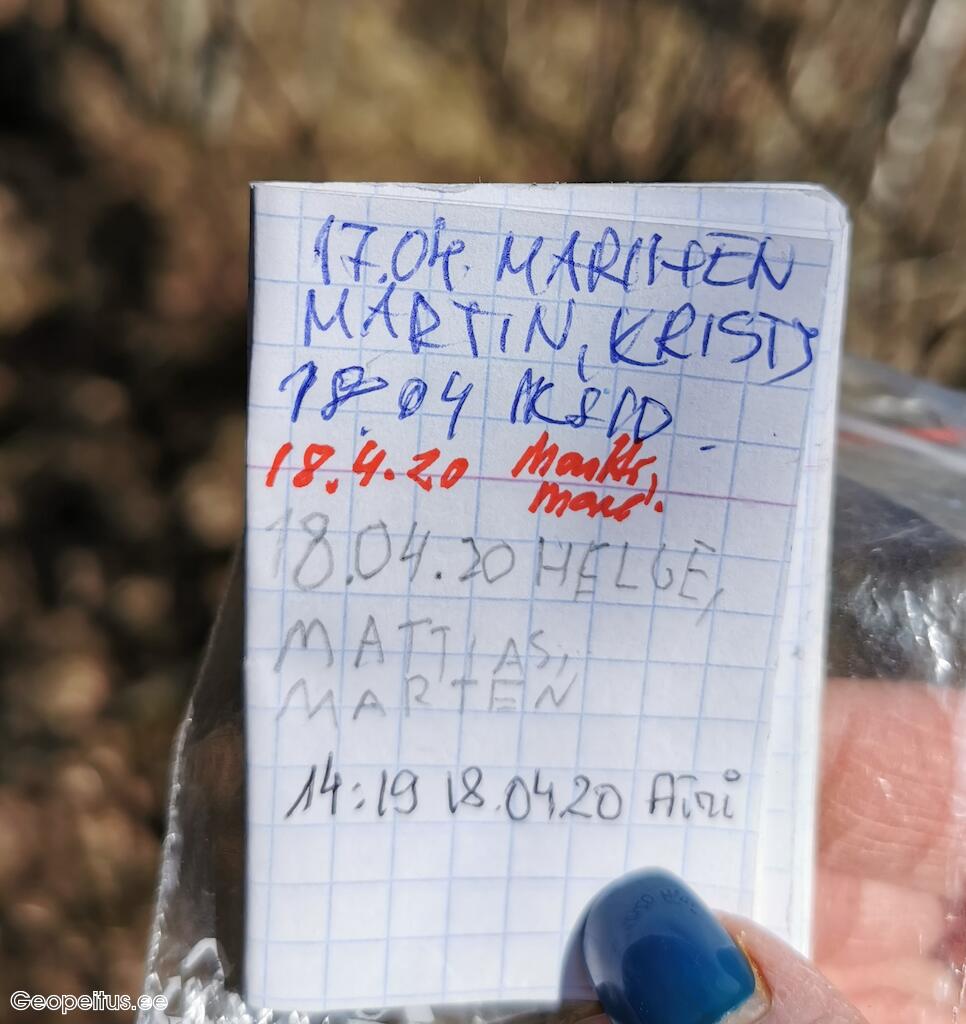 17.04. MARILEEN
MÄRTIN, KRISTJ
18.04
18.4.20
18.04.20 HELGE,
MATTIAS,
MARTEN
14:19 18.04.20 Airi
Geopeitus.ee